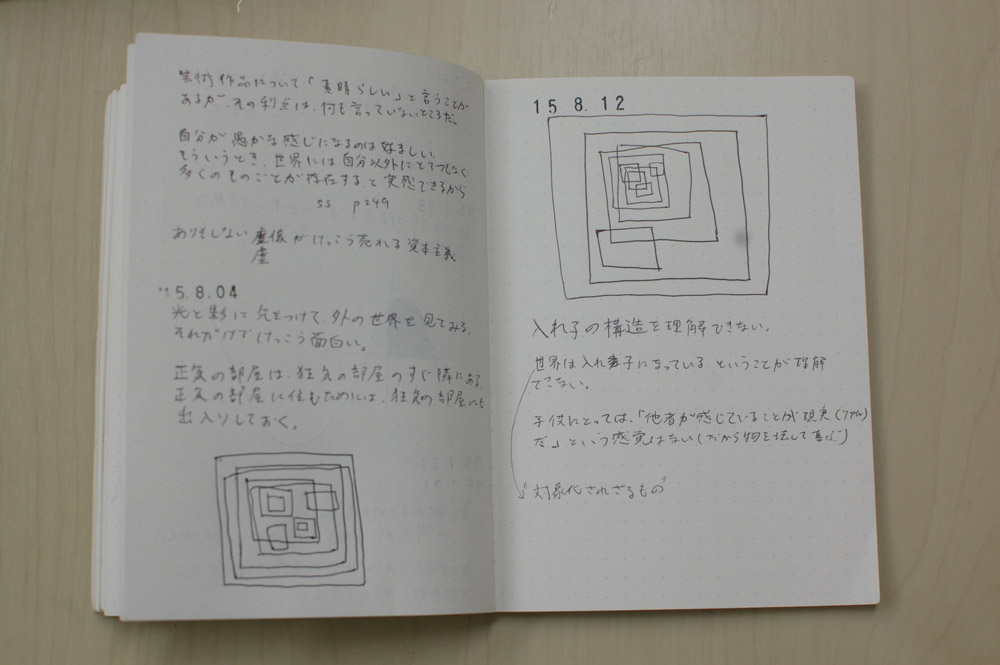 芸術作品について「素晴らしい」と言うことが
あるが、その利点は、何も言っていないところだ。
自分が愚かな感じになるのは好ましい
そういうとき、世界には自分以外にとてつもなく
多くのものごとが存在する、と実感できるから
SS P249
ありもしない虚像がけっこう売れる資本主義
虚
15.8.04
光と影に気をつけて、外の世界を見てみる。
それだけでけっこう面白い。
正気の部屋は、狂気の部屋のすぐ隣にある。
正気の部屋に住むためには、狂気の部屋にも
出入りしておく。
15 8.12
入れ子の構造を理解できない。
世界は入れ子になっている ということが理解
できない。
子供にとっては、「他者が感じていることが現実(リアル)
だ」という感覚はない(だから物を壊して喜ぶ)
"対象化されざるもの"